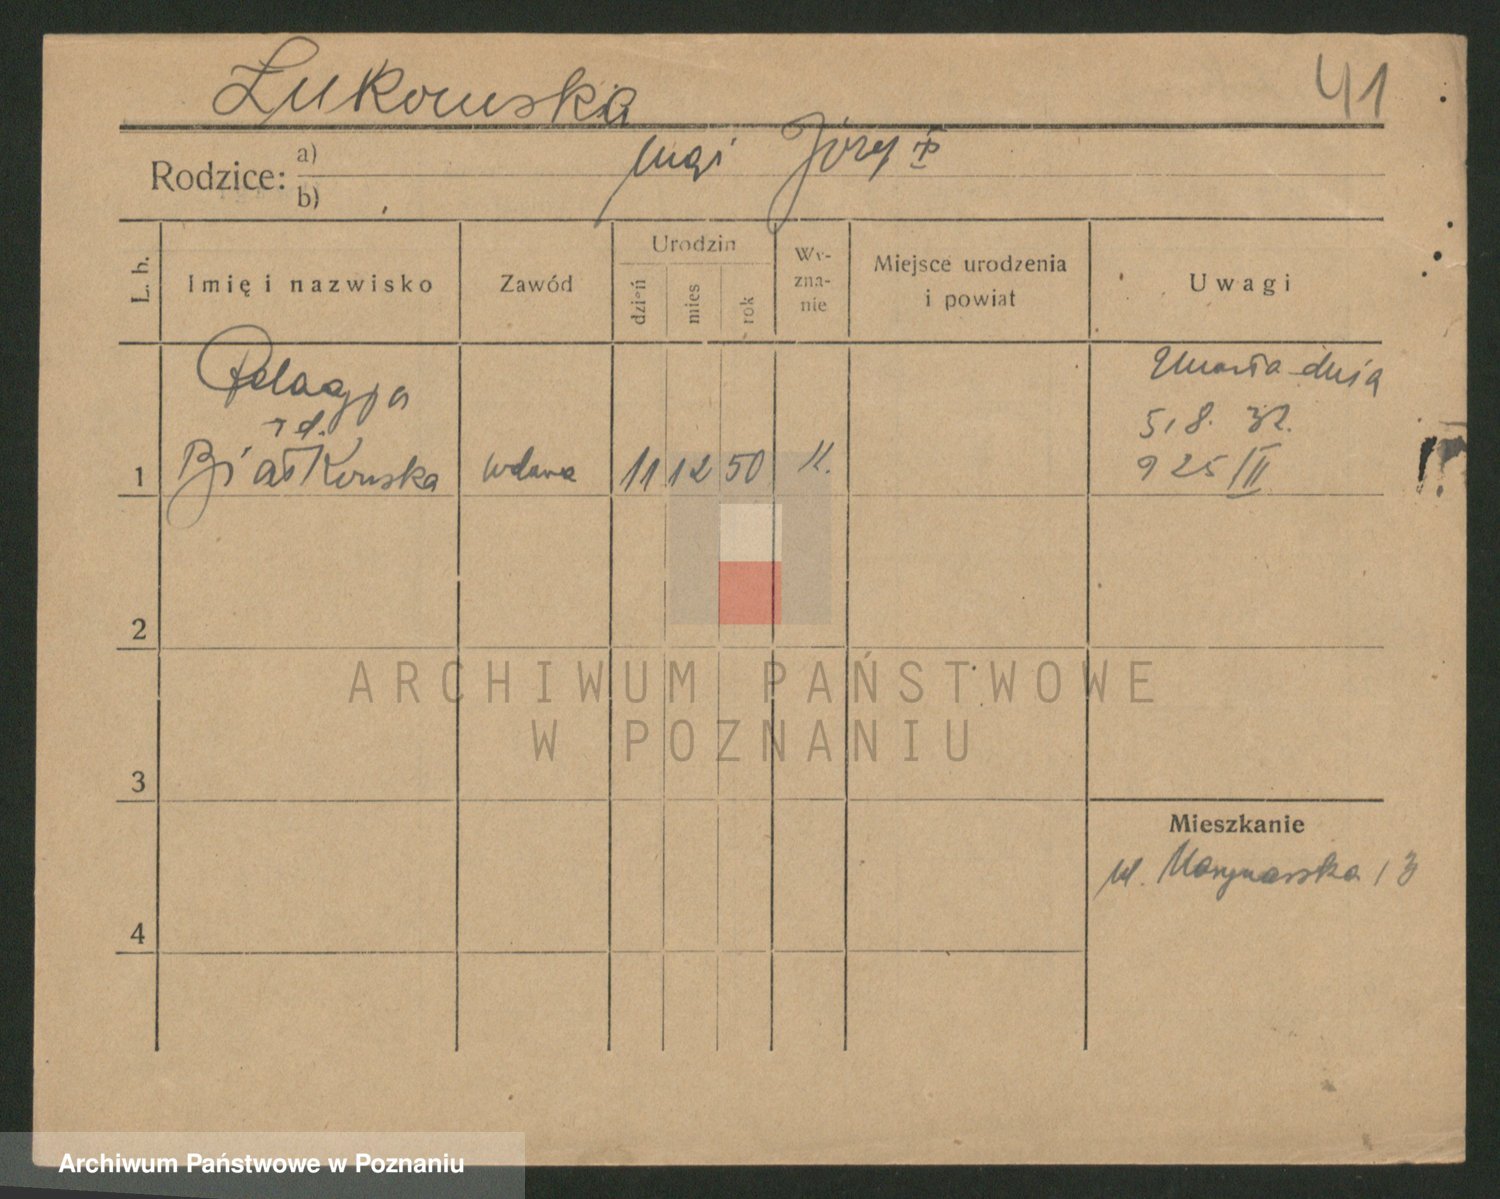 Łukowska
41
Rodzice:
a)
b)
mąż Józef
L. b.
Imię i nazwisko
Zawód
Urodzin
dzień
mies
rok
Wy-
zna-
nie
Miejsce urodzenia
i powiat
Uwagi
Pelagja
rd.
1 Białkowska wdowa 11 12 50 k.
Umarła dnia
5.8. 32.
925/II
2
3
4
Mieszkanie
ul. Marynarska 13
ARCHIWUM PAŃSTWOWE
W POZNANIU
Archiwum Państwowe w Poznaniu